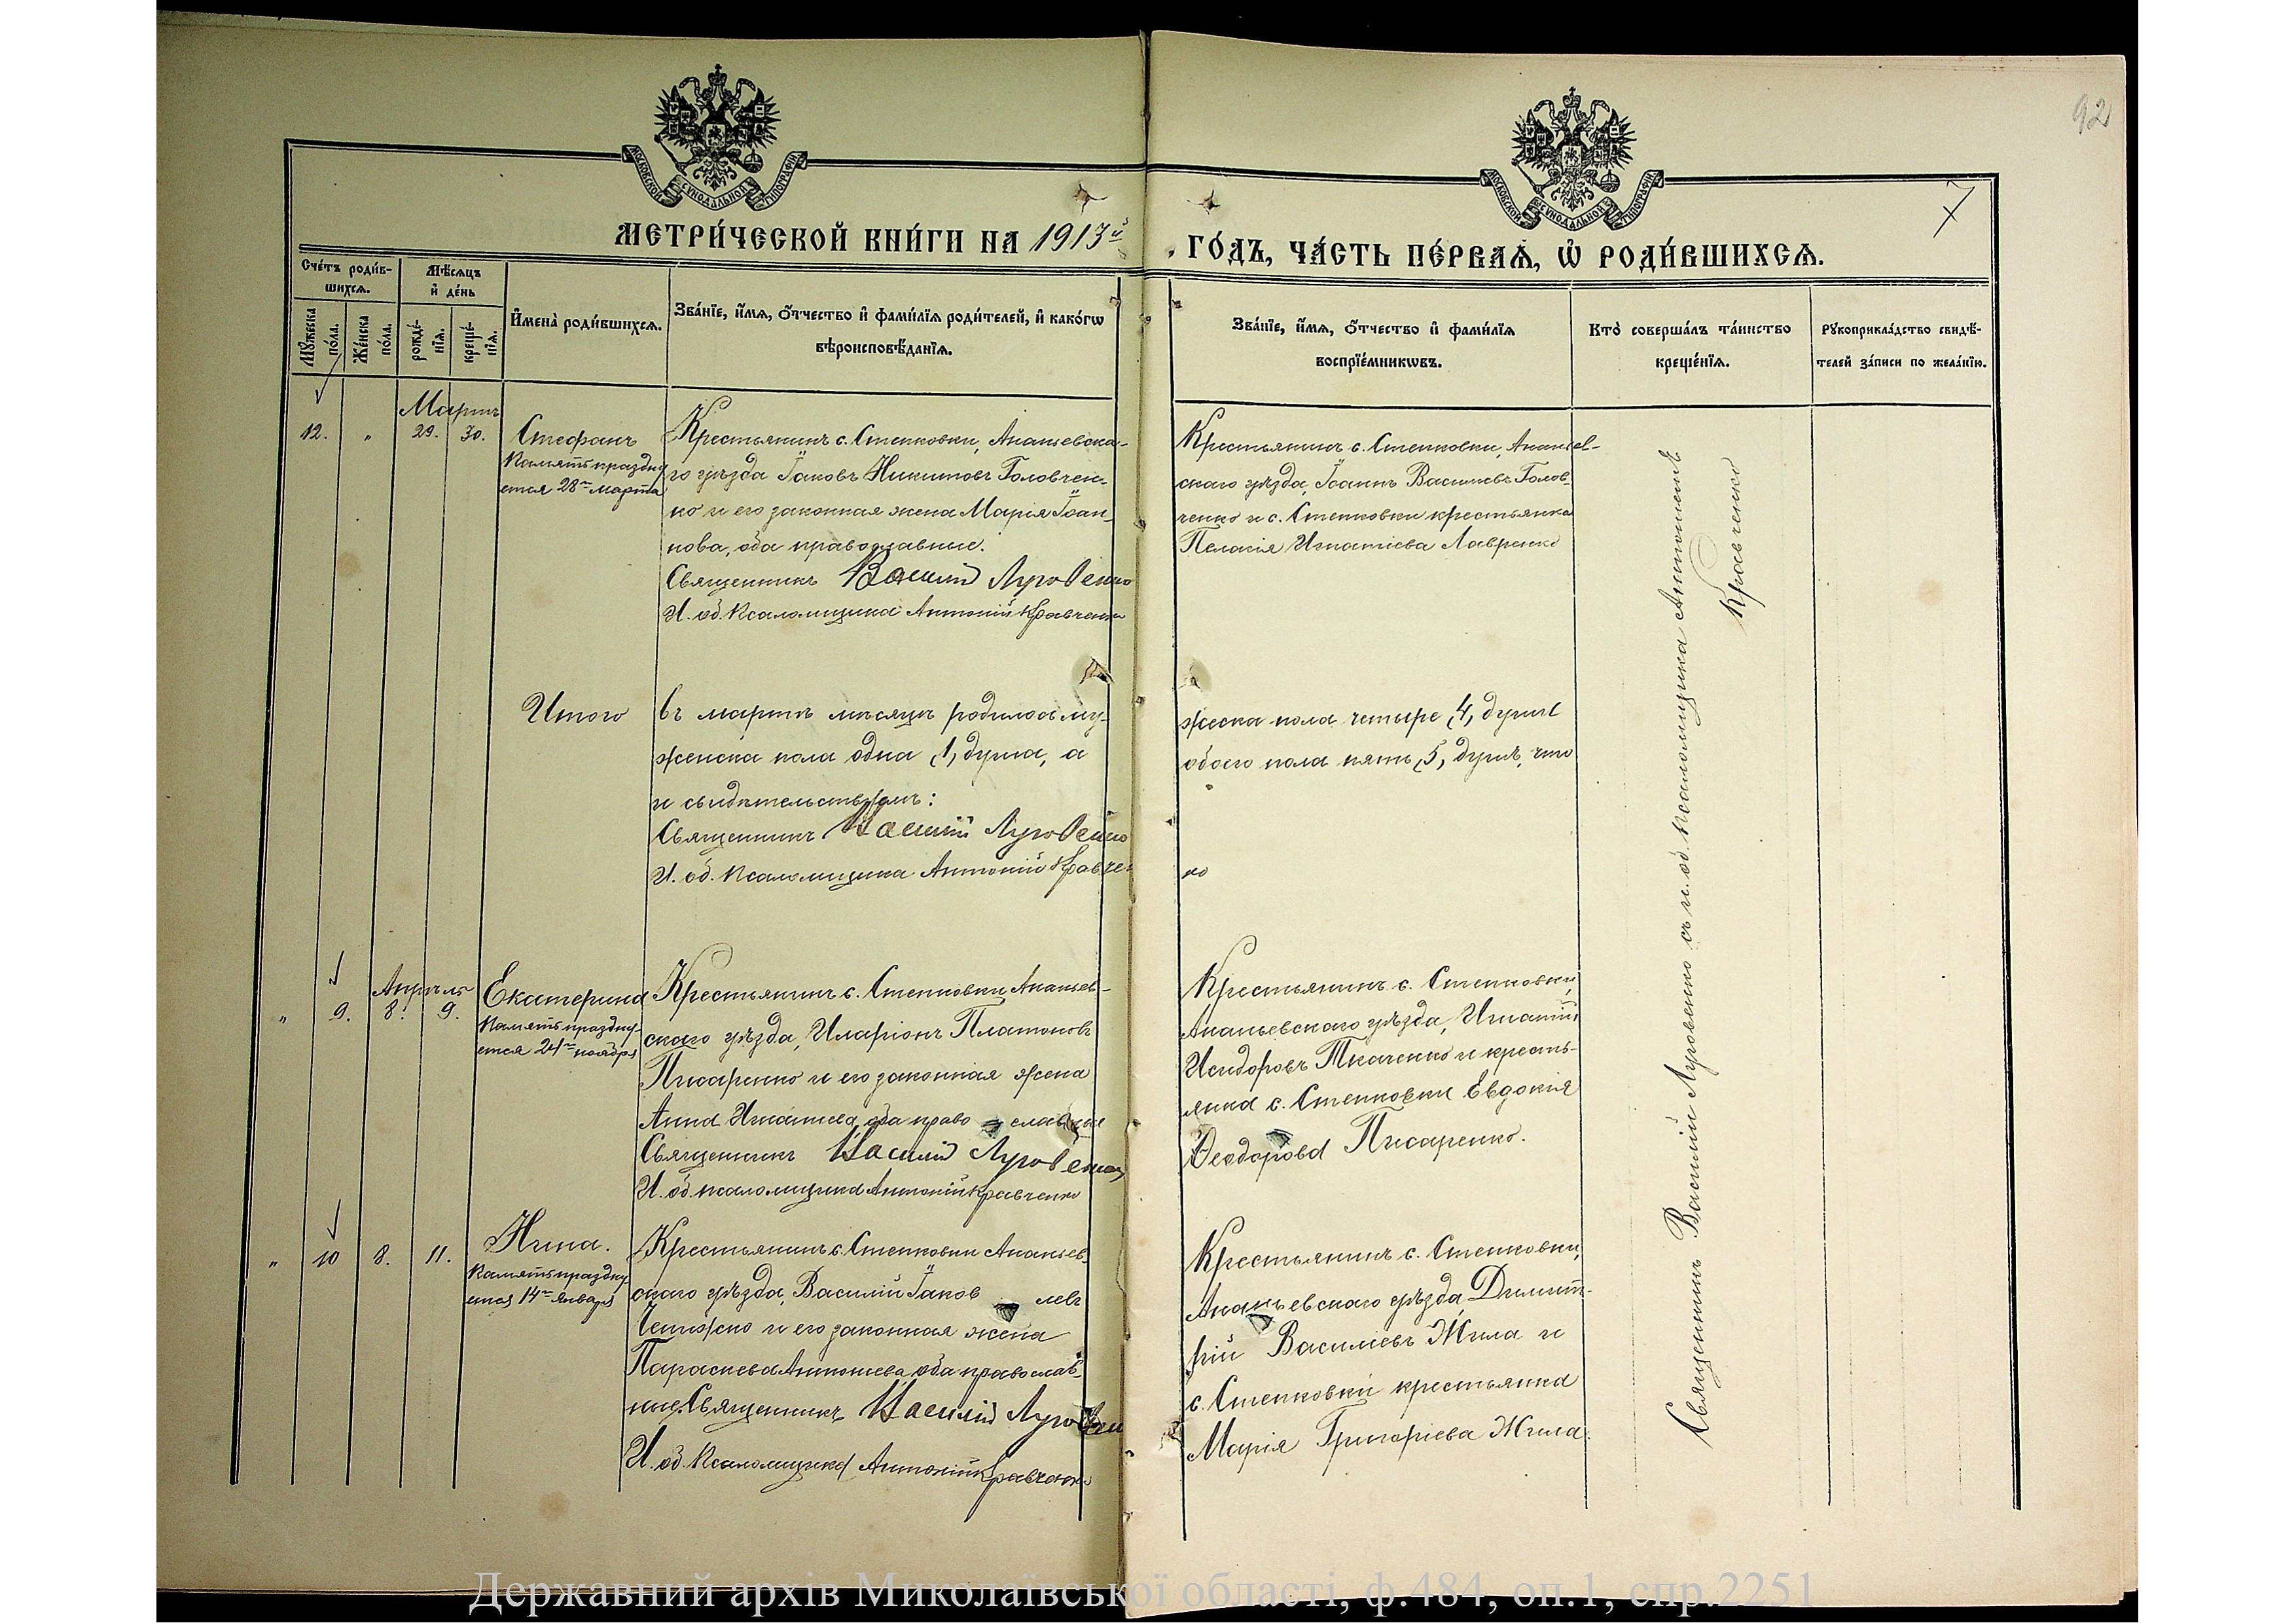 92
7
МОСКОВСКОЙ СѴНОДАЛЬНОЙ ТИПОГРАФІИ
МОСКОВСКОЙ СѴНОДАЛЬНОЙ ТИПОГРАФІИ
МЕТРИ́ЧЕСКОЙ КНИ́ГИ НА 1913й
ГО́ДЪ, ЧА́СТЬ ПЕ́РВАѦ, Ѡ҆ РОДИ́ВШИХСѦ.
Сче́тъ роди́в-
шихсѧ.
Мѣ́сѧцъ
и҆ де́нь
Мꙋ́жеска
по́ла.
Же́нска
по́ла.
рожде́-
нїѧ.
креще́-
нїѧ.
И҆мена̀ роди́вшихсѧ.
Зва́нїе, и҆́мѧ, ѻ҆́тчество и҆ фами́лїѧ роди́телей, и҆ како́гѡ
вѣроисповѣ́данїѧ.
Зва́нїе, и҆́мѧ, ѻ҆́тчество и҆ фами́лїѧ
воспрїе́мникѡвъ.
Кто̀ соверша́лъ та́инство
креще́нїѧ.
Рꙋкоприкла́дство свидѣ́-
телей за́писи по жела́нїю.
Мартъ
12. „ 29. 30.
Стефанъ
Память праздну
ется 28го марта
Крестьянинъ с. Степковки, Ананьевска-
го уѣзда Іаковъ Никитовъ Головчен-
ко и его законная жена Марія Іоан-
нова, оба православные.
Священникъ Василій Луговенко
И. об. Псаломщика Антоній Кравченко
Крестьянинъ с. Степковки, Ананьев-
скаго уѣзда, Іоаннъ Васильевъ Голов-
ченко и с. Степковки крестьянка
Пелагія Игнатіева Лавренко
Итого
въ мартѣ мѣсяцѣ родилось му-
женска пола одна „1„ душа, а
и свидѣтельствуемъ:
Священникъ Василій Луговенко
И. об. псаломщика Антоній Кравчен
жеска пола четыре „4„ души
обоего пола пять „5„ душъ, что
ко
Апрѣль
„ 9. 8. 9.
Екатерина
Память праздну-
ется 24го ноября
Крестьянинъ с. Степковки, Ананьев-
скаго уѣзда, Иларіонъ Платоновъ
Писаренко и его законная жена
Анна Игнатіева, оба право славные
Священникъ Василій Луговенко
И. об. псаломщика Антоній Кравченко
Крестьянинъ с. Степковки,
Ананьевскаго уѣзда, Игнатій
Исидоровъ Ткаченко и кресть-
янка с. Степковки Евдокія
Ѳеодорова Писаренко.
„ 10 8. 11.
Нина.
Память праздну
ется 14го января
Крестьянинъ с. Степковки Ананьев-
скаго уѣзда, Василій Іаков левъ
и его законная жена
Параскева Антоніева, оба православ-
ные. Священникъ Василій Луговен
И. об. Псаломщика Антоній Кравченко
Крестьянинъ с. Степковки,
Ананьевскаго уѣзда, Димит-
рій Василіевъ Жила и
с. Степковки крестьянка
Марія Григоріева Жила.
Священникъ Василій Луговенко съ и. об. псаломщика Антоніемъ
Кравченко
Державний архів Миколаївської області, ф.484, оп.1, спр.2251